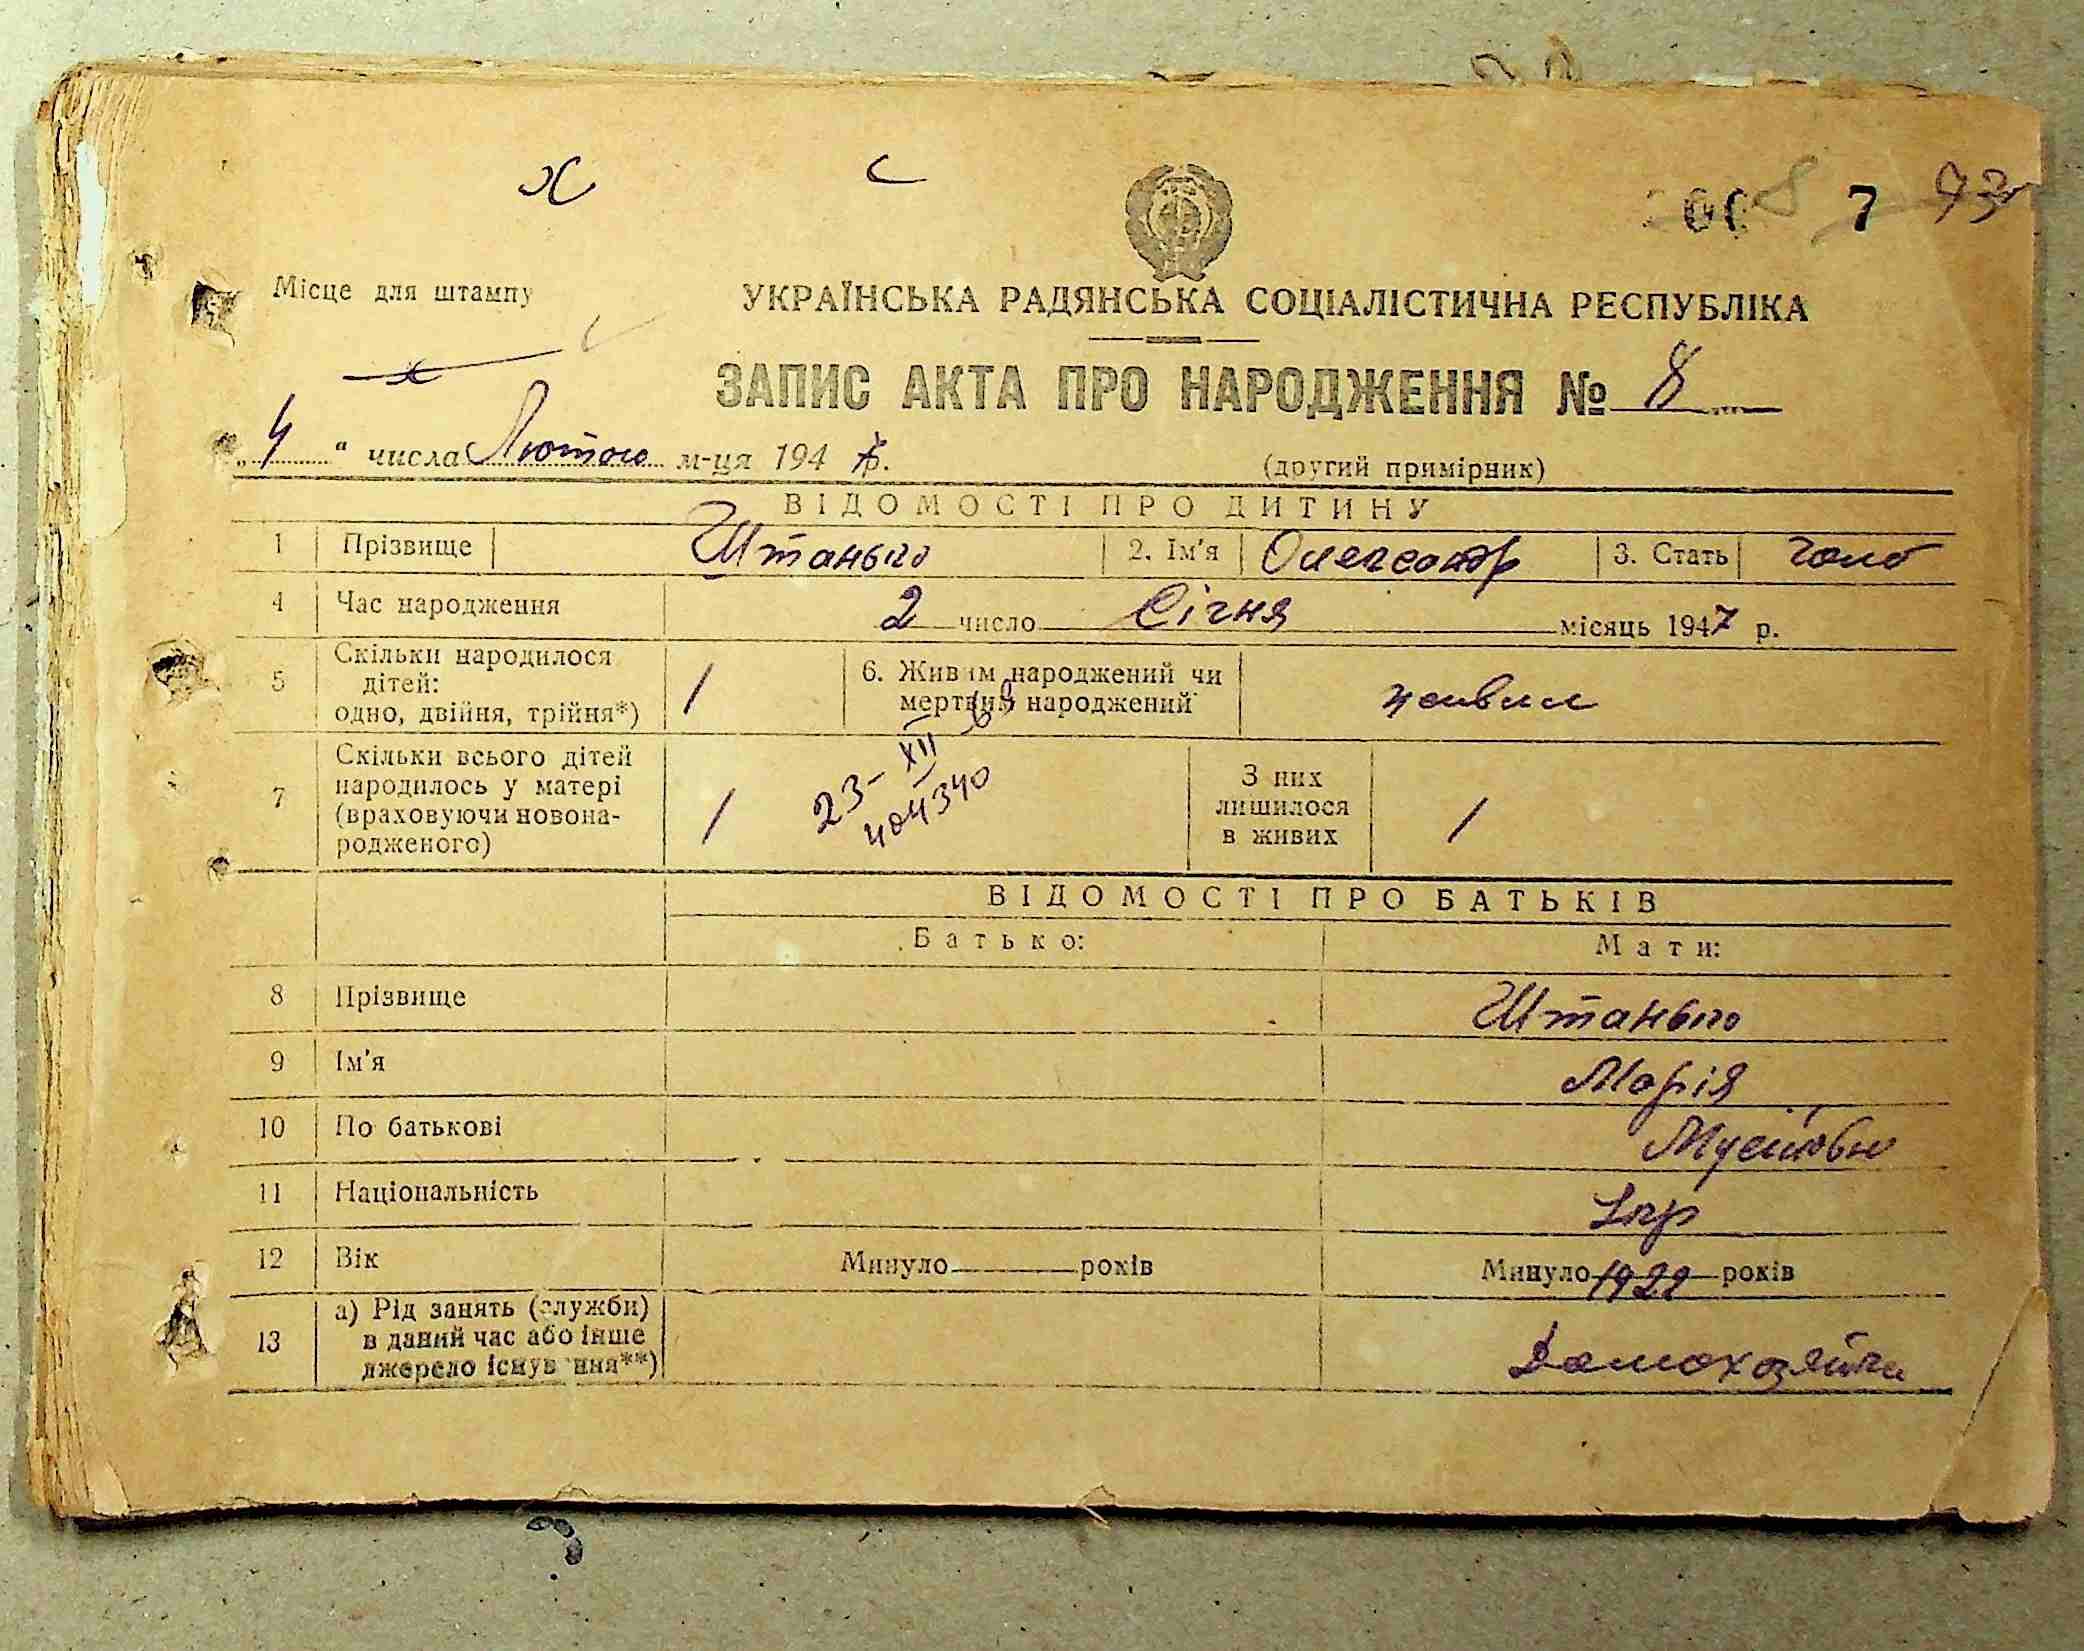 7 93
Місце для штампу
УКРАЇНСЬКА РАДЯНСЬКА СОЦІАЛІСТИЧНА РЕСПУБЛІКА
ЗАПИС АКТА ПРО НАРОДЖЕННЯ № 8
„4“ числа Лютого м-ця 1947 р.
(другий примірник)
ВІДОМОСТІ ПРО ДИТИНУ
1 Прізвище Штанько 2. Ім'я Олександр 3. Стать чол
4 Час народження 2 число Січня місяць 1947 р.
5 Скільки народилося дітей: одно, двійня, трійня*) 1 6. Живим народжений чи мертвим народжений живим
7 Скільки всього дітей народилось у матері (враховуючи новонародженого) 1 З них лишилося в живих 1
23-XII-69
404340
ВІДОМОСТІ ПРО БАТЬКІВ
Батько: Мати:
8 Прізвище Штанько
9 Ім'я Марія
10 По батькові Мусіївн
11 Національність Укр
12 Вік Минуло років Минуло 1922 років
13 а) Рід занять (служби) в даний час або інше джерело існування**) Домохозяйки